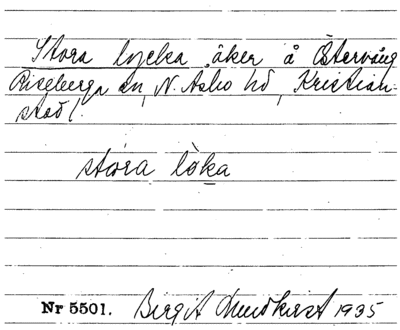 Stora lycka åker å Östervång
Riseberga sn, N. Asbo hd, Kristian-
stad l.
stóra lö̀ka
Nr 5501. Birgit Lundkvist 1935